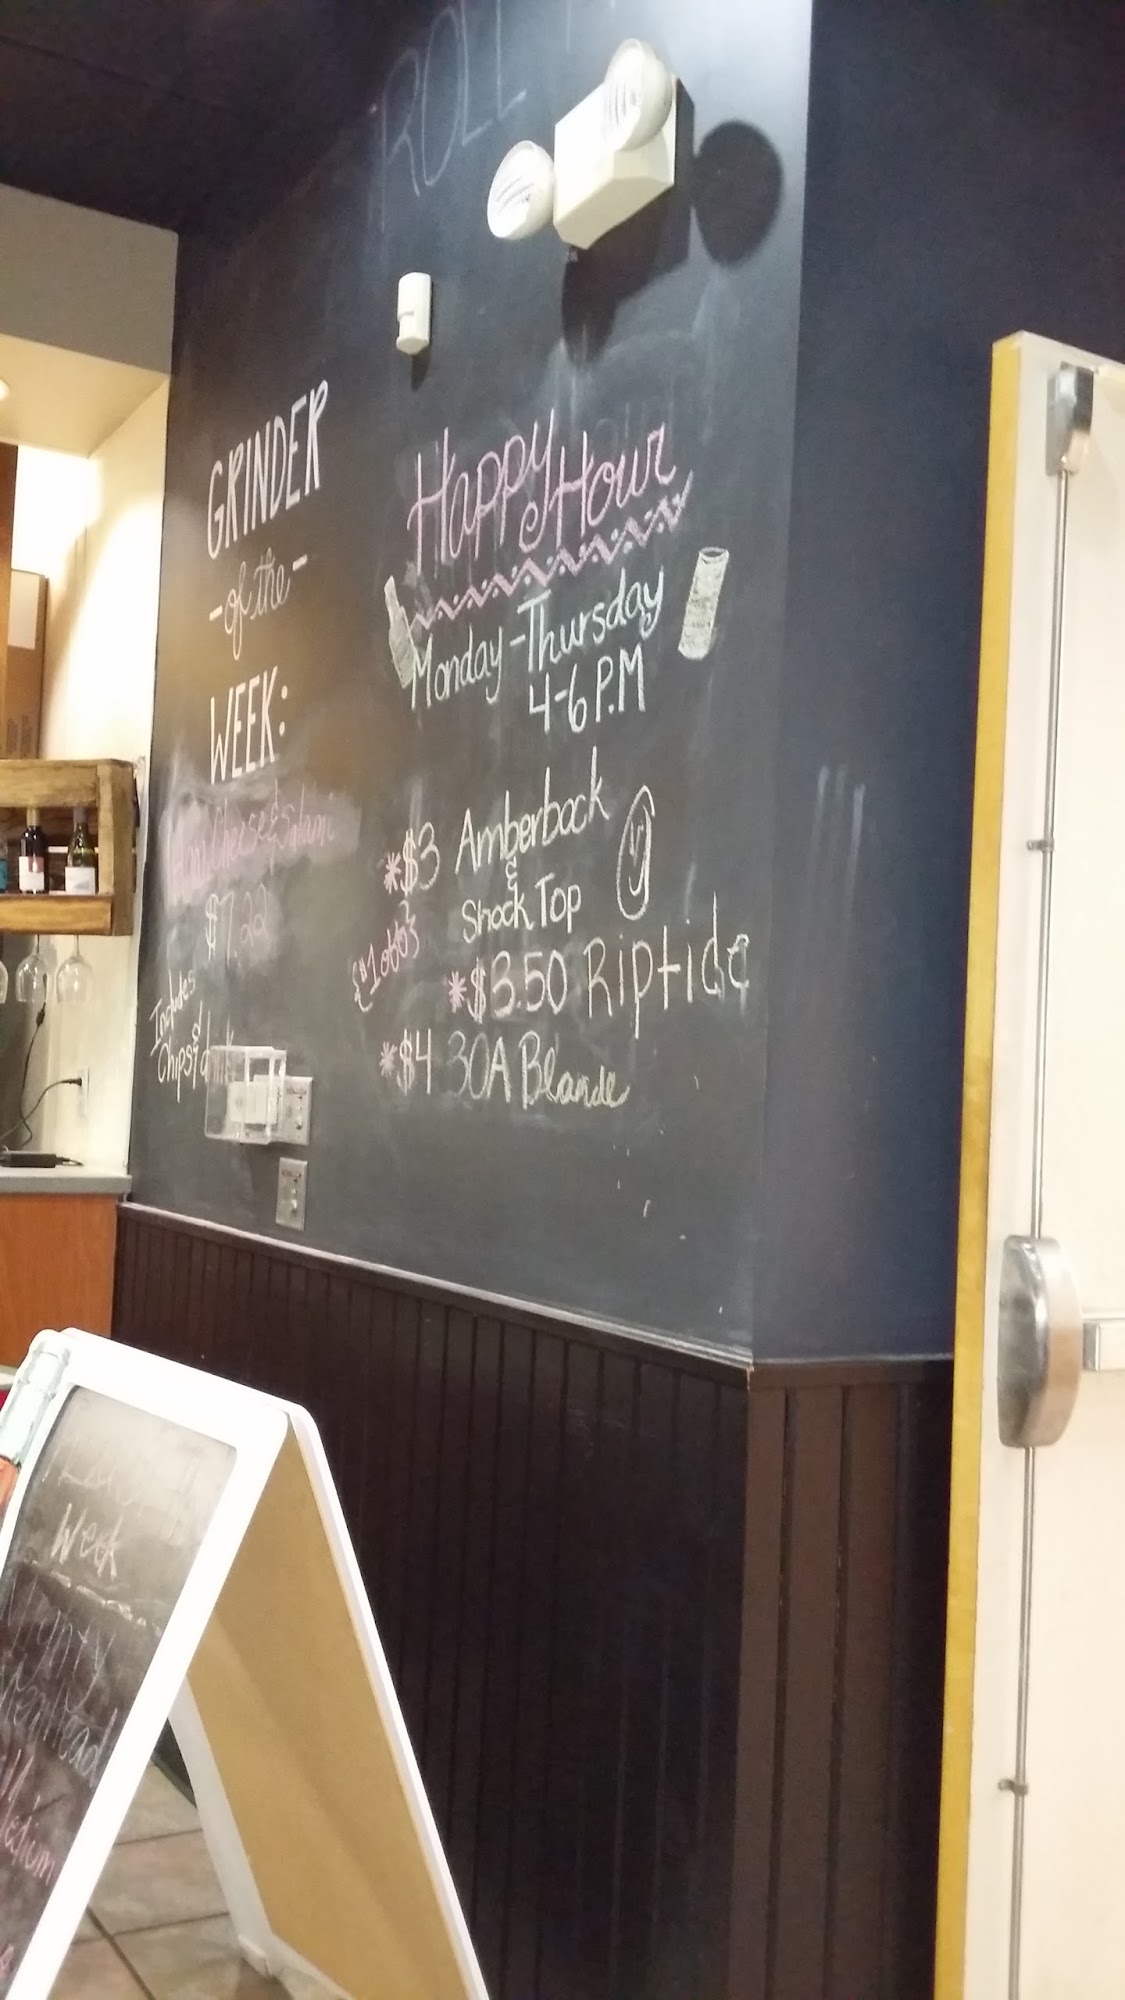 ROLL
GRINDER
-of the-
WEEK:
Cheese & Salami
$7.22
Includes
Chips &
Happy Hour
Monday-Thursday
4-6 P.M
*$3 Amberbock
&
Shock Top
{$1 off}
*$3.50 Riptide
*$4 30A Blande
Week